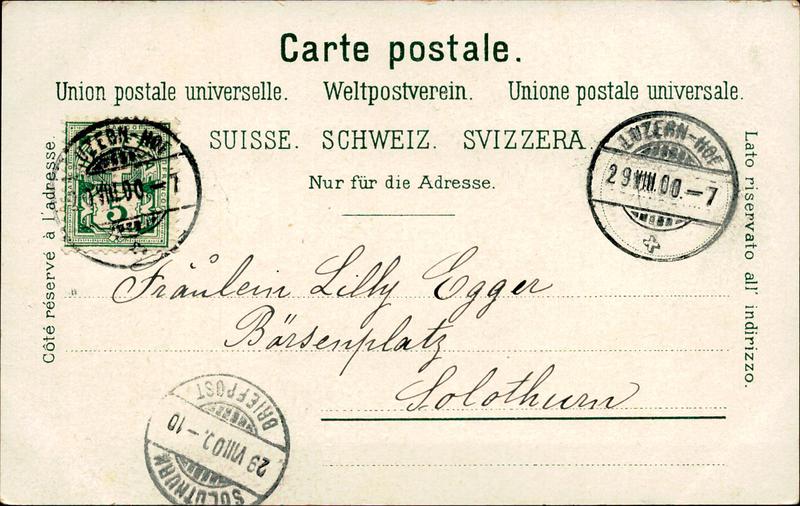 Carte postale.
Union postale universelle. Weltpostverein. Unione postale universale.
SUISSE. SCHWEIZ. SVIZZERA.
Nur für die Adresse.
Côté réservé à l'adresse.
Lato riservato all' indirizzo.
LUZERN-HOF
VIII.00.-7
5
LUZERN-HOF
29.VIII.00.-7
Fräulein Lilly Egger
Börsenplatz
Solothurn
BRIEFPOST
29 VIII.0 -10
SOLOTHURN